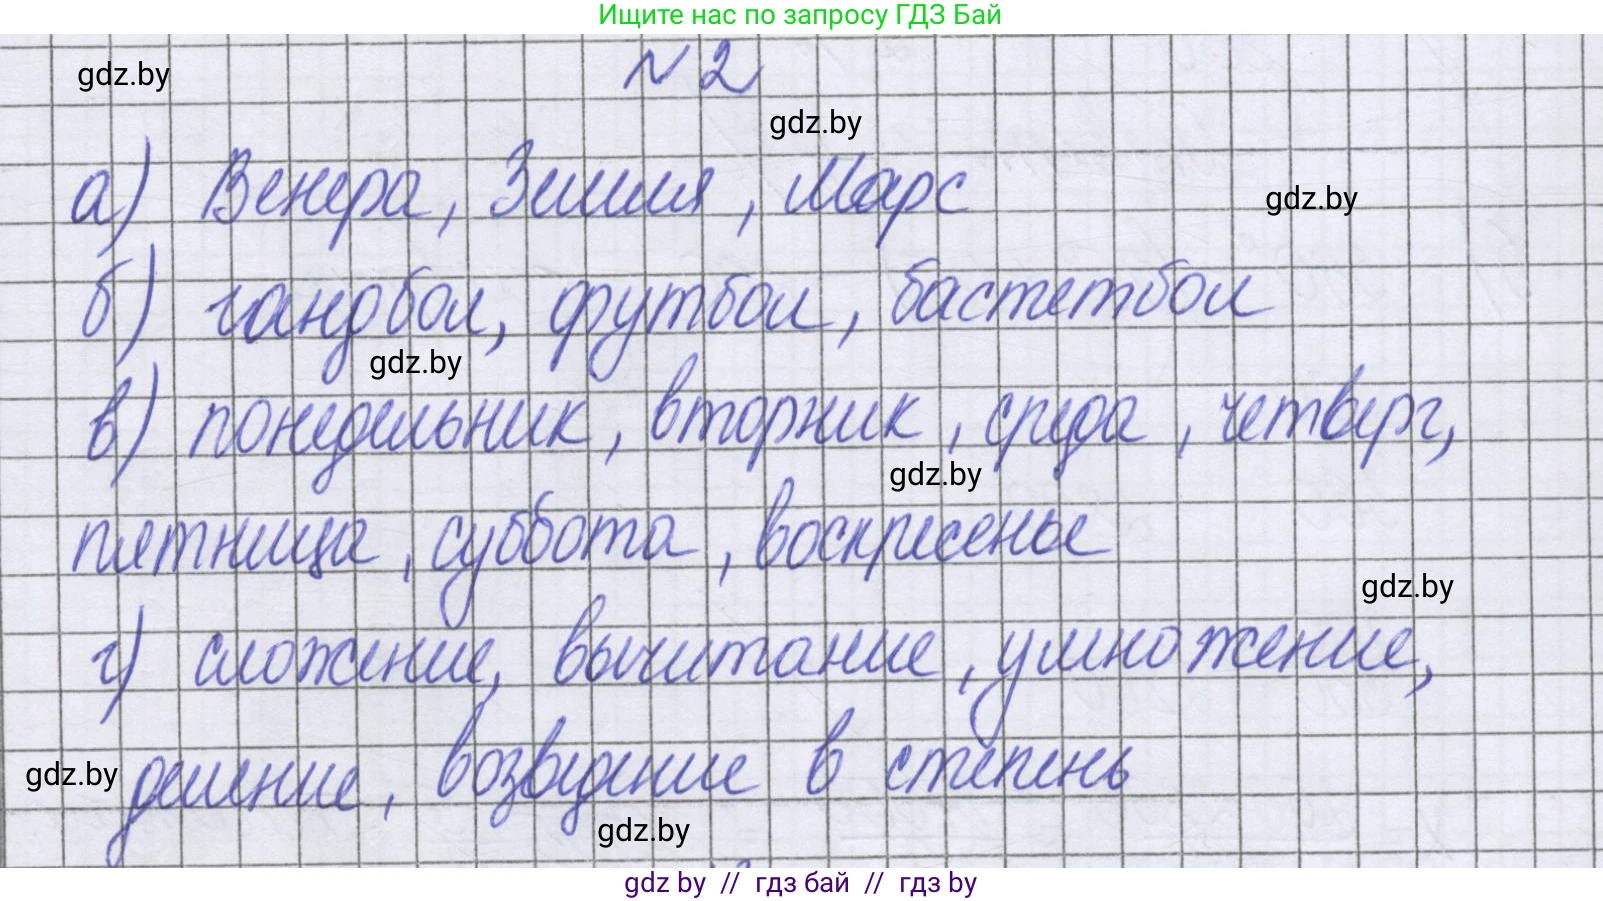 Ищите нас по запросу ГДЗ Бай
№ 2
gdz.by
gdz.by
а) Венера, Земля, Марс
gdz.by
б) гандбол, футбол, баскетбол
gdz.by
в) понедельник, вторник, среда, четверг,
gdz.by
пятница, суббота, воскресенье
gdz.by
г) сложение, вычитание, умножение,
gdz.by деление, возведение в степень
gdz.by
gdz by // гдз бай // гдз by